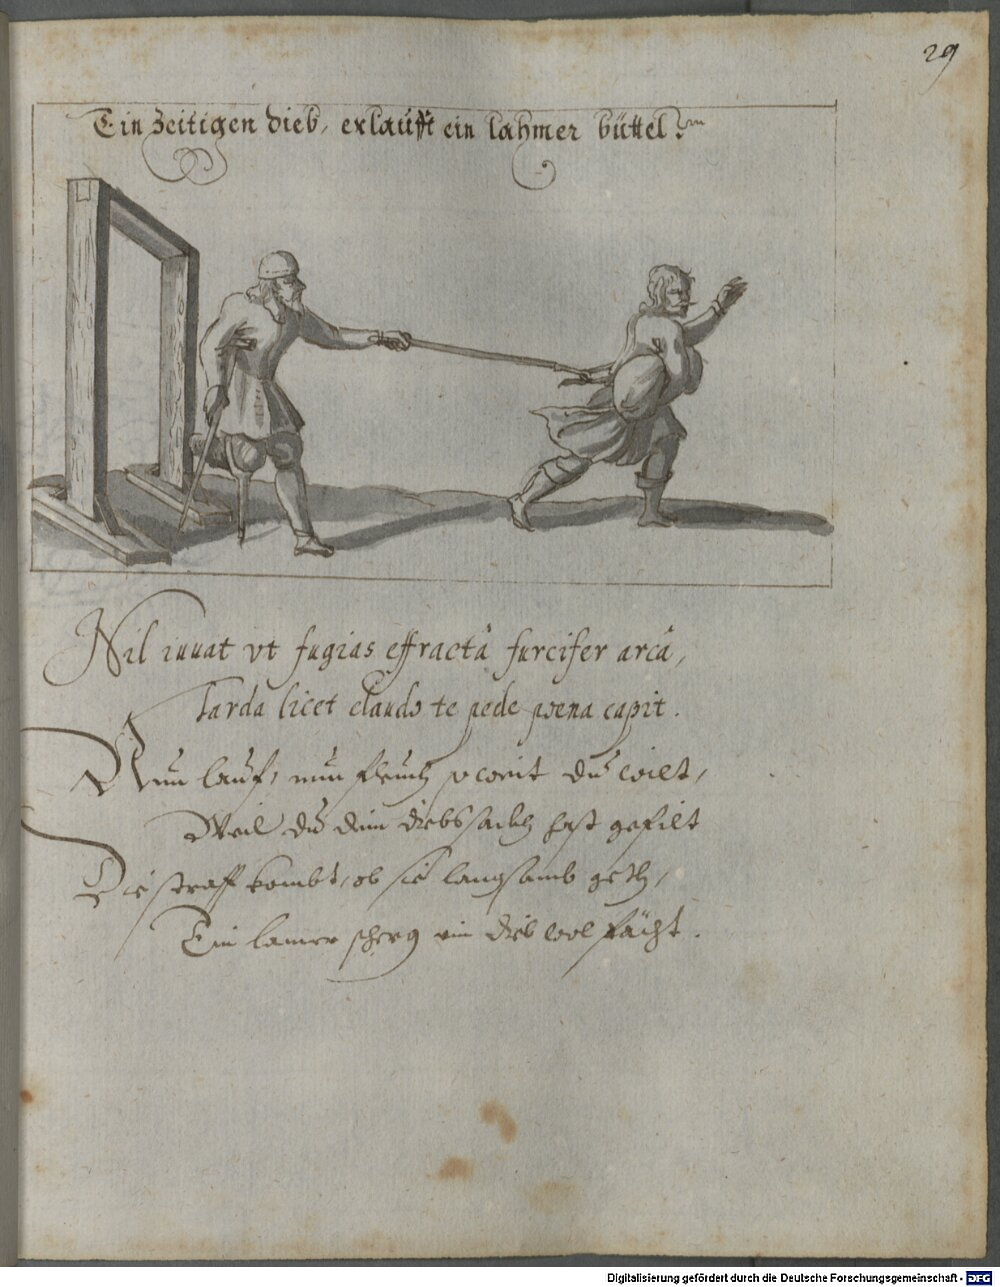 29
Ein zeitigen dieb, erlaufft ein lahmer büttel.
Nil iuuat vt fugias effractâ furcifer arcâ,
Tarda licet claudo te pede poena capit.
Nun lauf, nun fleuch so weit du wilt,
Weil du dein diebssackh hast gefilt
Die straff kombt, ob sie langsamb geth,
Ein lamer scherg ein dieb wol fächt.
Digitalisierung gefördert durch die Deutsche Forschungsgemeinschaft - DFG